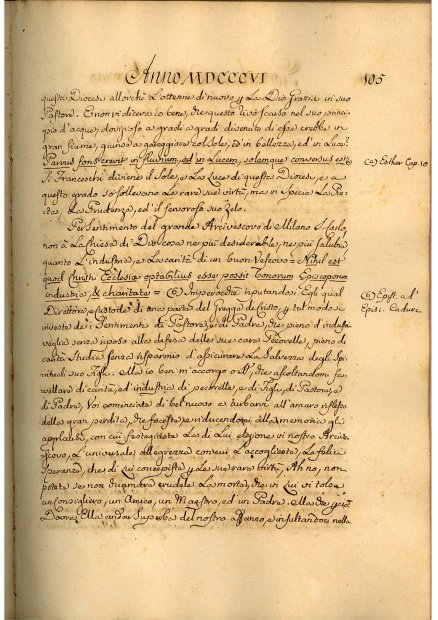 Anno MDCCCVI
105
questa Diocesi allorchè L'ottenne di nuovo p La Dio Grazia in suo
Pastore. E non vi diceva io bene, che questo Ruscello nel suo princi-
pio d'acque, a gradi a gradi divenuto di esse crebbe in
gran fiume, giunse a gareggiare col sole, ed in bellezza, ed in Luce:
Parvus fons crevit in fluvium, ed in Lucem, solemque conversus est =
(a) Esther Cap. 10
Li Franceschi divenne il Sole, e La Luce di questa Diocesi, e a
questo grado sollevarono Le rare sue virtù, ma in Specie La Pie-
tà, La Prudenza, ed il fervoroso suo Zelo.
Per Sentimento del grande Arcivescovo di Milano S. Carlo,
non à La Chiesa di Dio cosa ne più desiderabile, ne più salubre
quanto L'industria, e La carità di un buon Vescovo = Nihil est
quod Christi Ecclesia optabilius esse possit bonorum Episcoporum
industria, & charitate = (b) Imperocchè riputandosi Egli qual
(b) Epist. ad
Episc. Cadurc.
Direttore, e custode di una parte del Gregge di Cristo, e tal modo s'in-
veste de' i Sentimenti di Pastore, e di Padre, che pieno d'industria
veglia senza riposo alla difesa delle sue care Pecorelle, pieno di
carità Studia senza risparmio d'assicurare La Salvezza degli Spi-
rituali suoi Figli. Ma io ben m'accorgo o N, che ascoltandomi fa-
vellare di carità, ed industria di pecorelle, e di Figli, di Pastore, e
di Padre, Voi cominciate di bel nuovo a turbarvi all'amaro riflesso
della gran perdita, che faceste, e riducendomi alla memoria gli
applausi, con cui festeggiaste La di Lui elezione in nostro Arci-
, L'universale allegrezza con cui L'accoglieste, La felice
speranza, che di Lui concepiste p Le sue rare virtù, Ah no, non
potete se non crudele La morte, che in Lui vi tolse
un consigliero, un Amico, un Maestro, ed un Padre. Ma che giova
Ella andrà Superba del nostro affanno, e insultandoci nella